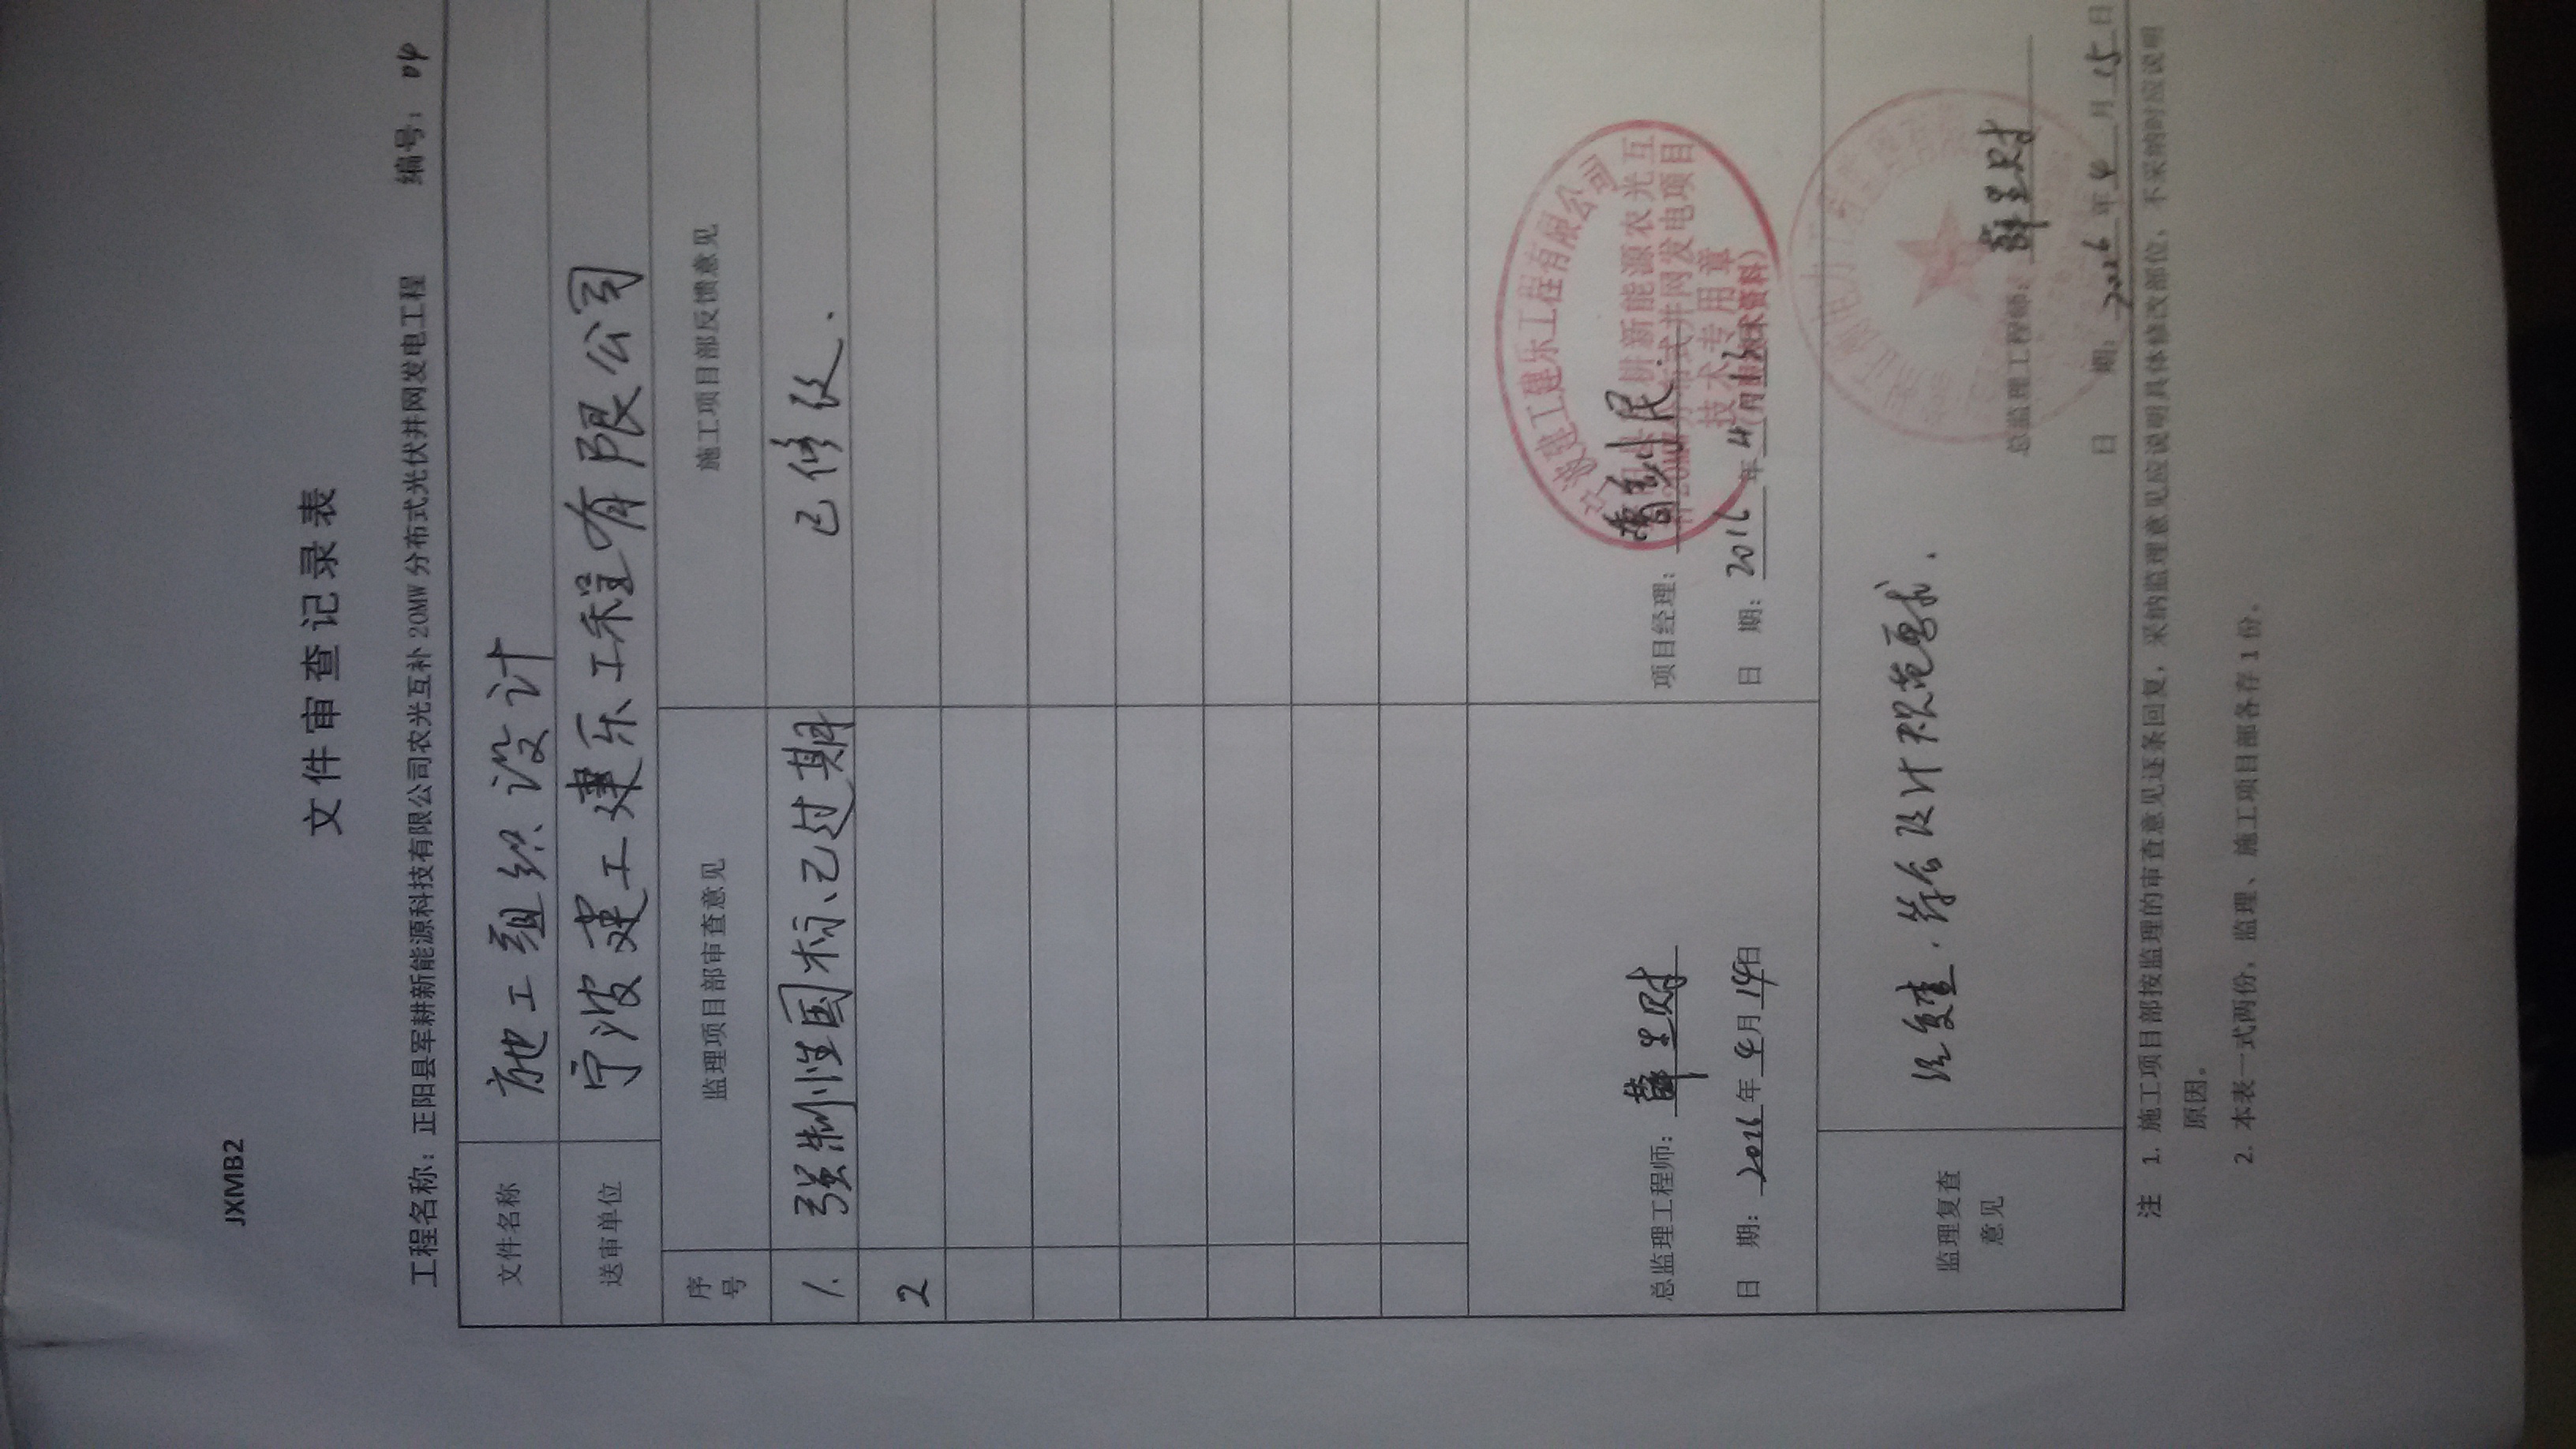 JXMB2
文件审查记录表
工程名称：正阳县军耕新能源科技有限公司农光互补 20MW 分布式光伏并网发电工程 编号：04
文件名称 施工组织设计
送审单位 宁波建工建乐工程有限公司
序号 监理项目部审查意见 施工项目部反馈意见
1. 强制性国标已过期 已修改.
2
总监理工程师：
项目经理：
日 期：2016年4月14日
日 期：2016年4月
宁波建工建乐工程有限公司
耕新能源农光互
补20MW分布式并网发电项目
技术专用章
监理复查意见
经复查.符合设计规范要求.
总监理工程师：
日 期：2016年4月15日
注 1. 施工项目部按监理的审查意见逐条回复，采纳监理意见应说明具体修改部位，不采纳时应说明
原因。
2. 本表一式两份，监理、施工项目部各存 1 份。